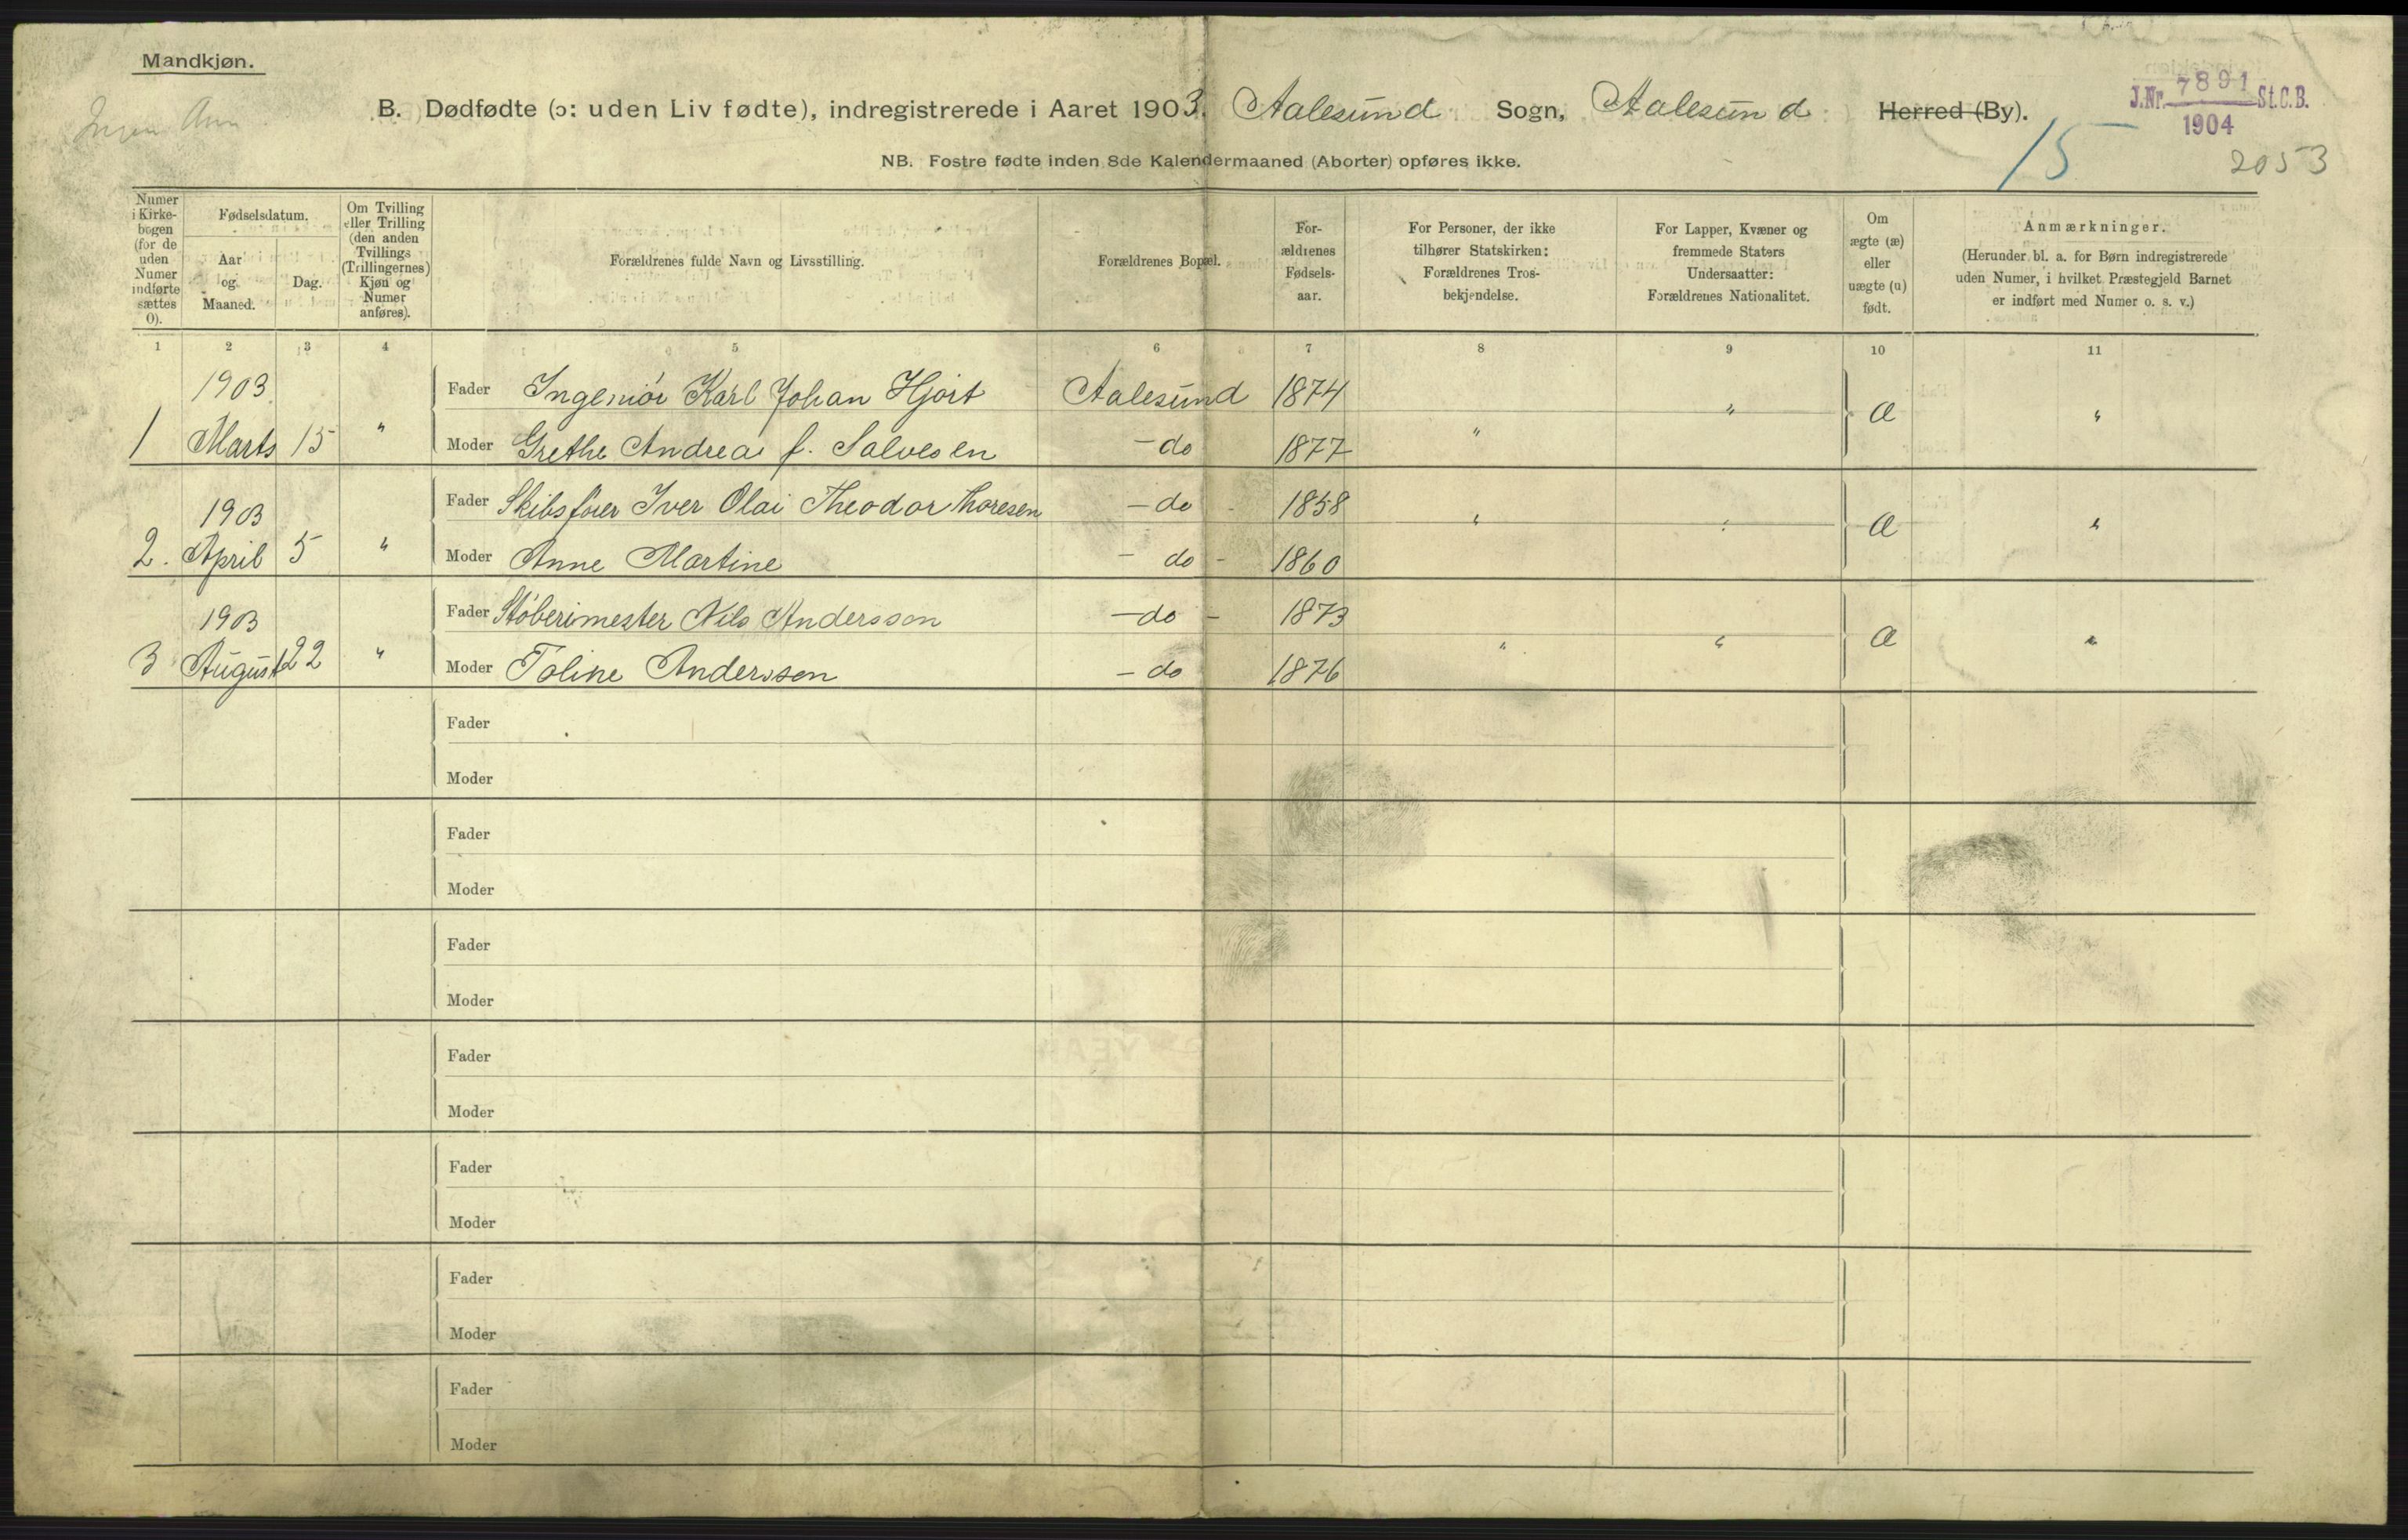 Mandkjøn.
B. Dødfødte (ɔ: uden Liv fødte), indregistrerede i Aaret 1903. Aalesund Sogn, Aalesund Herred (By).
J.Nr. 7891 St.C.B.
1904
15
2053
NB. Fostre fødte inden 8de Kalendermaaned (Aborter) opføres ikke.
Numer
i Kirke-
bogen
(for de
uden
Numer
indførte
sættes
0).
Fødselsdatum.
Aar
og
Maaned.
Dag.
Om Tvilling
eller Trilling
(den anden
Tvillings
(Trillingernes)
Kjøn og
Numer
anføres).
Forældrenes fulde Navn og Livsstilling.
Forældrenes Bopæl.
For-
ældrenes
Fødsels-
aar.
For Personer, der ikke
tilhører Statskirken:
Forældrenes Tros-
bekjendelse.
For Lapper, Kvæner og
fremmede Staters
Undersaatter:
Forældrenes Nationalitet.
Om
ægte (æ)
eller
uægte (u)
født.
Anmærkninger.
(Herunder bl. a. for Børn indregistrerede
uden Numer, i hvilket Præstegjeld Barnet
er indført med Numer o. s. v.)
1 2 3 4 5 6 7 8 9 10 11
1903 Fader Ingeniør Karl Johan Hjort Aalesund 1874 " æ "
1 Marts 15 " Moder Grethe Andrea f. Salvesen - do 1877 "
1903 Fader Skibsfører Iver Olai Theodor Thoresen - do - 1858 " " æ "
2. April 5 " Moder Anne Martine - do - 1860
1903 Fader Støberimester Nils Andersson - do - 1873 " " æ "
3 August 22 " Moder Toline Andersson - do 1876
Fader
Moder
Fader
Moder
Fader
Moder
Fader
Moder
Fader
Moder
Fader
Moder
Fader
Moder